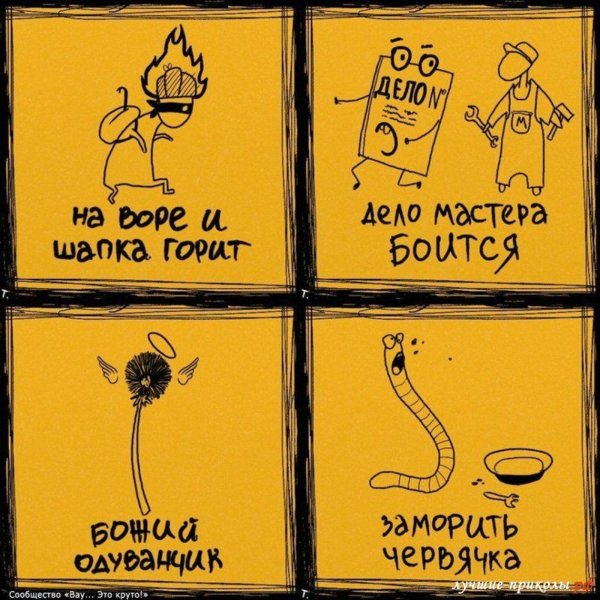 на воре и
шапка горит
ДЕЛО №
М
дело мастера
боится
Т.
Т.
божий
одуванчик
заморить
червячка
Сообщество «Вау... Это круто!»
Т.
лучшие-приколы.рф